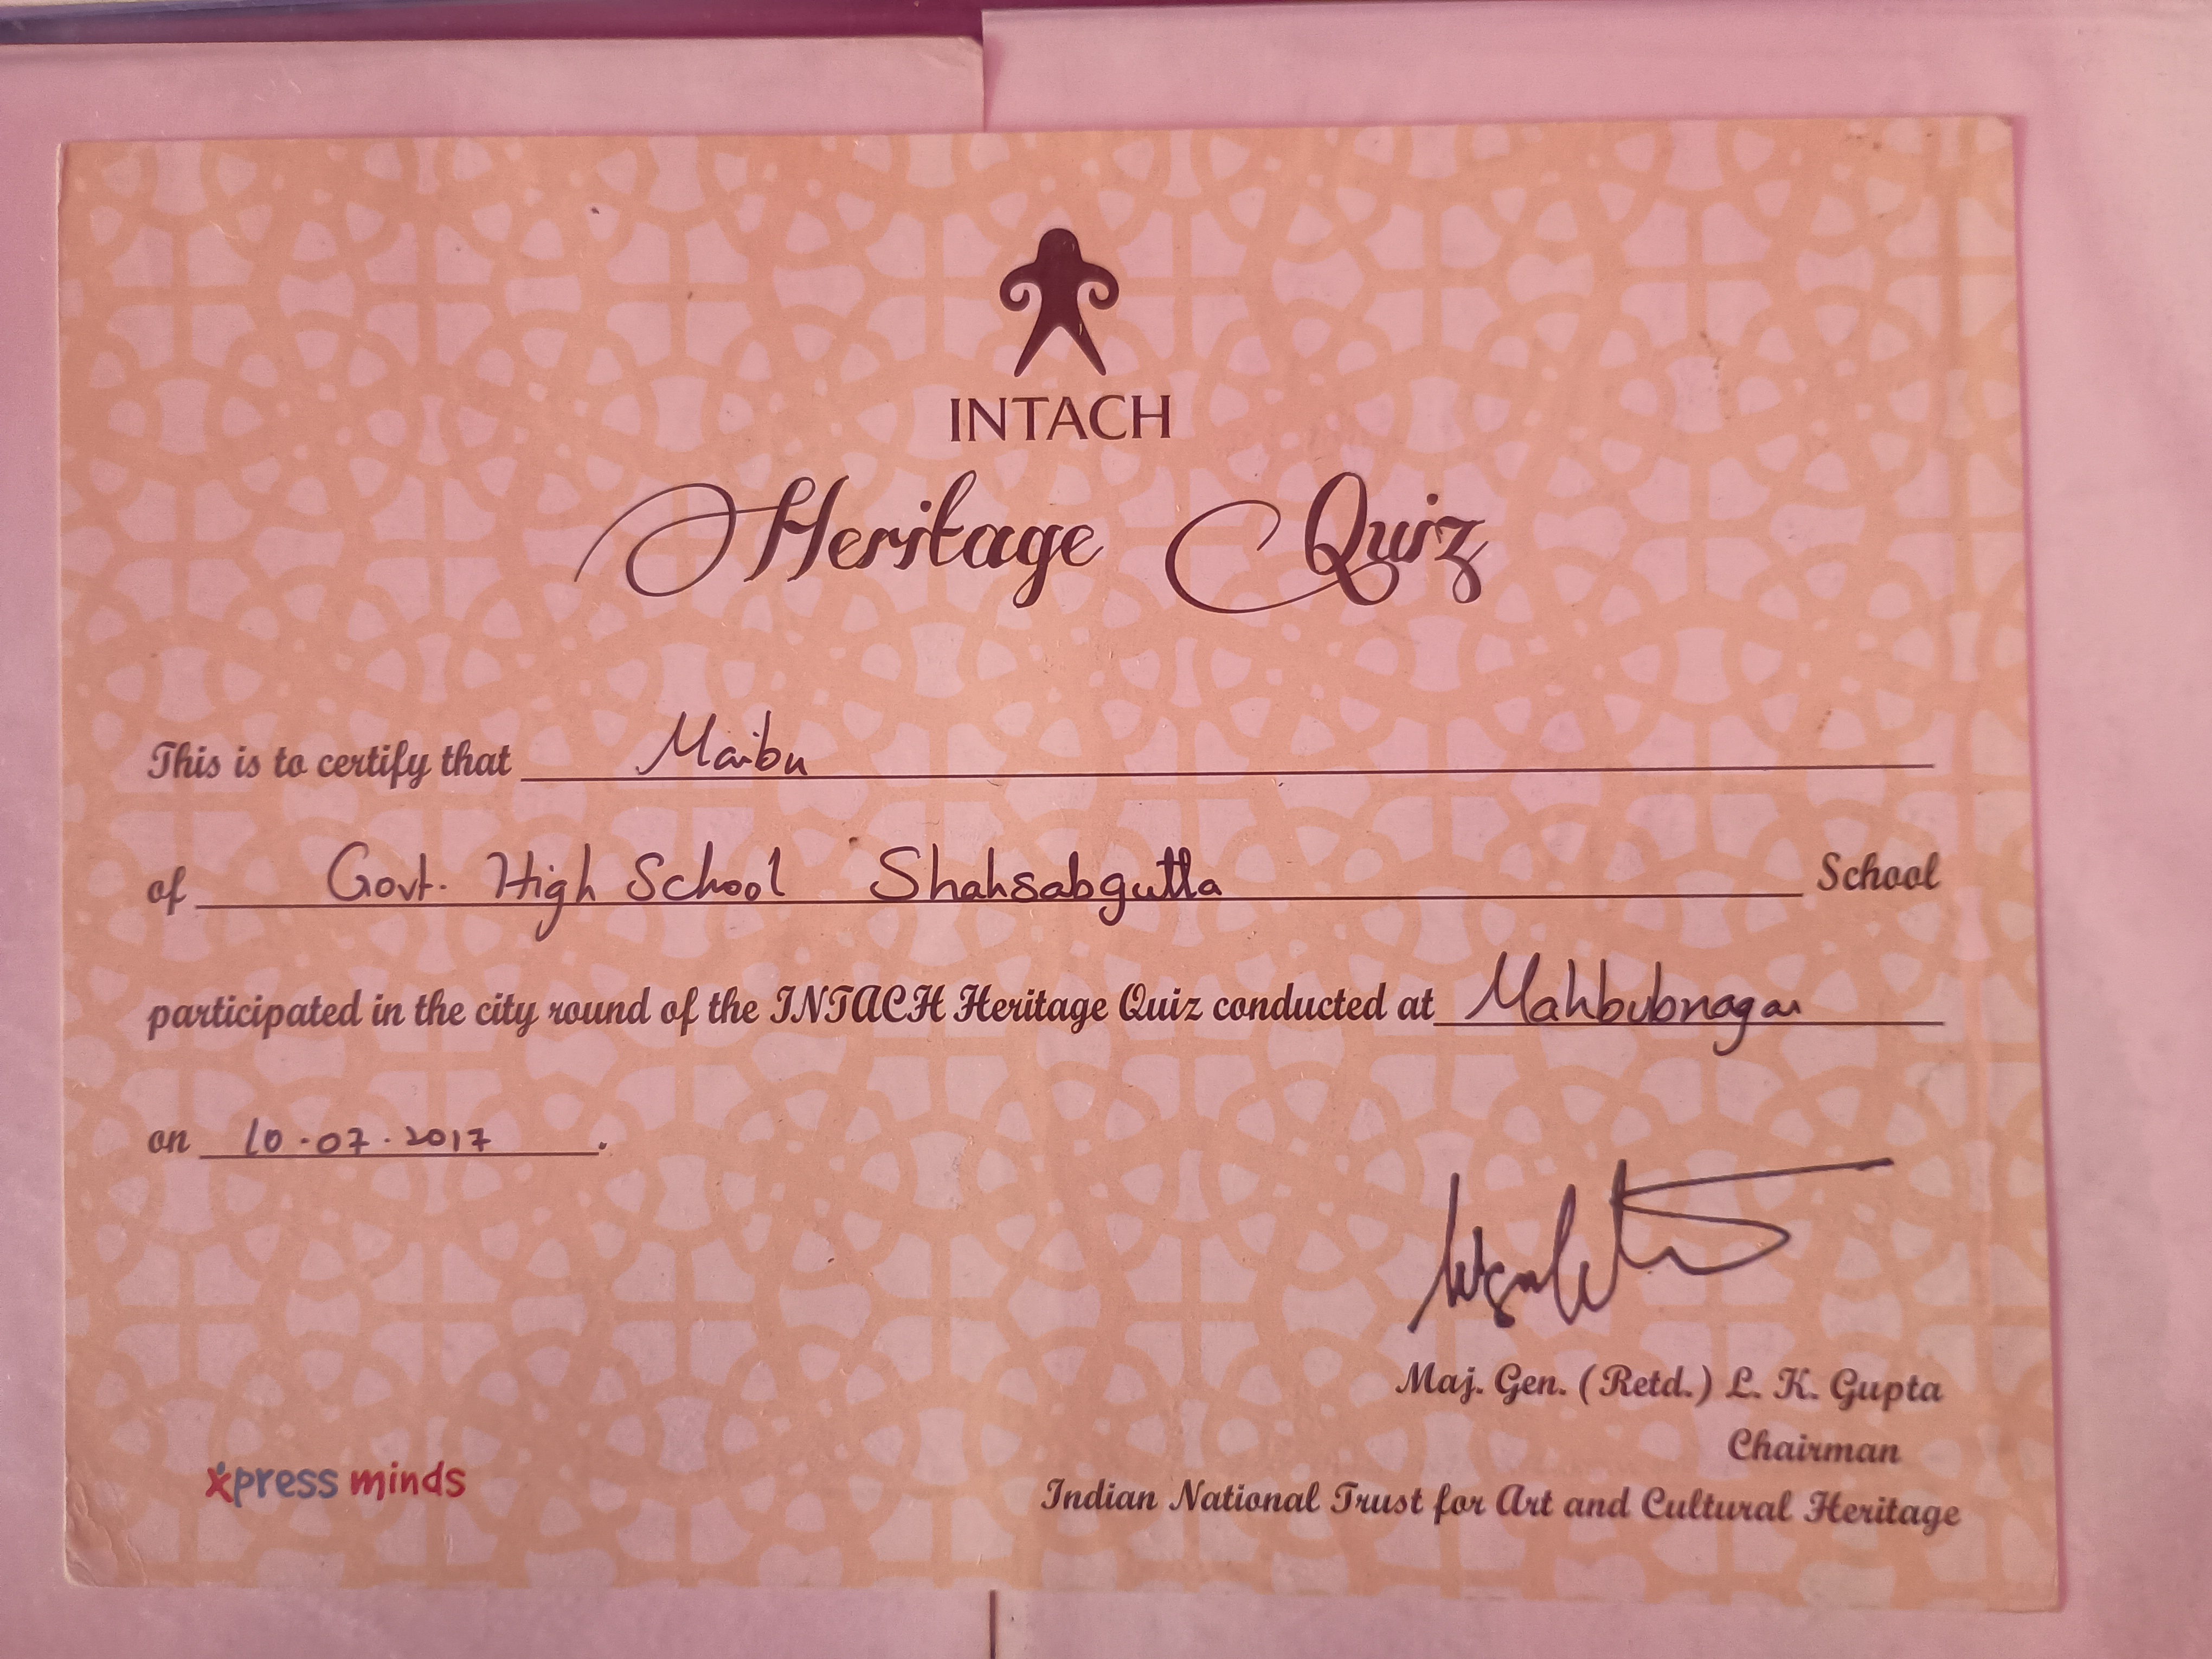 INTACH
Heritage Quiz
This is to certify that Maibu
of Govt. High School Shahsabgutta School
participated in the city round of the INTACH Heritage Quiz conducted at Mahbubnagar
on 10.07.2017.
Maj. Gen. (Retd.) L. K. Gupta
Chairman
xpress minds
Indian National Trust for Art and Cultural Heritage